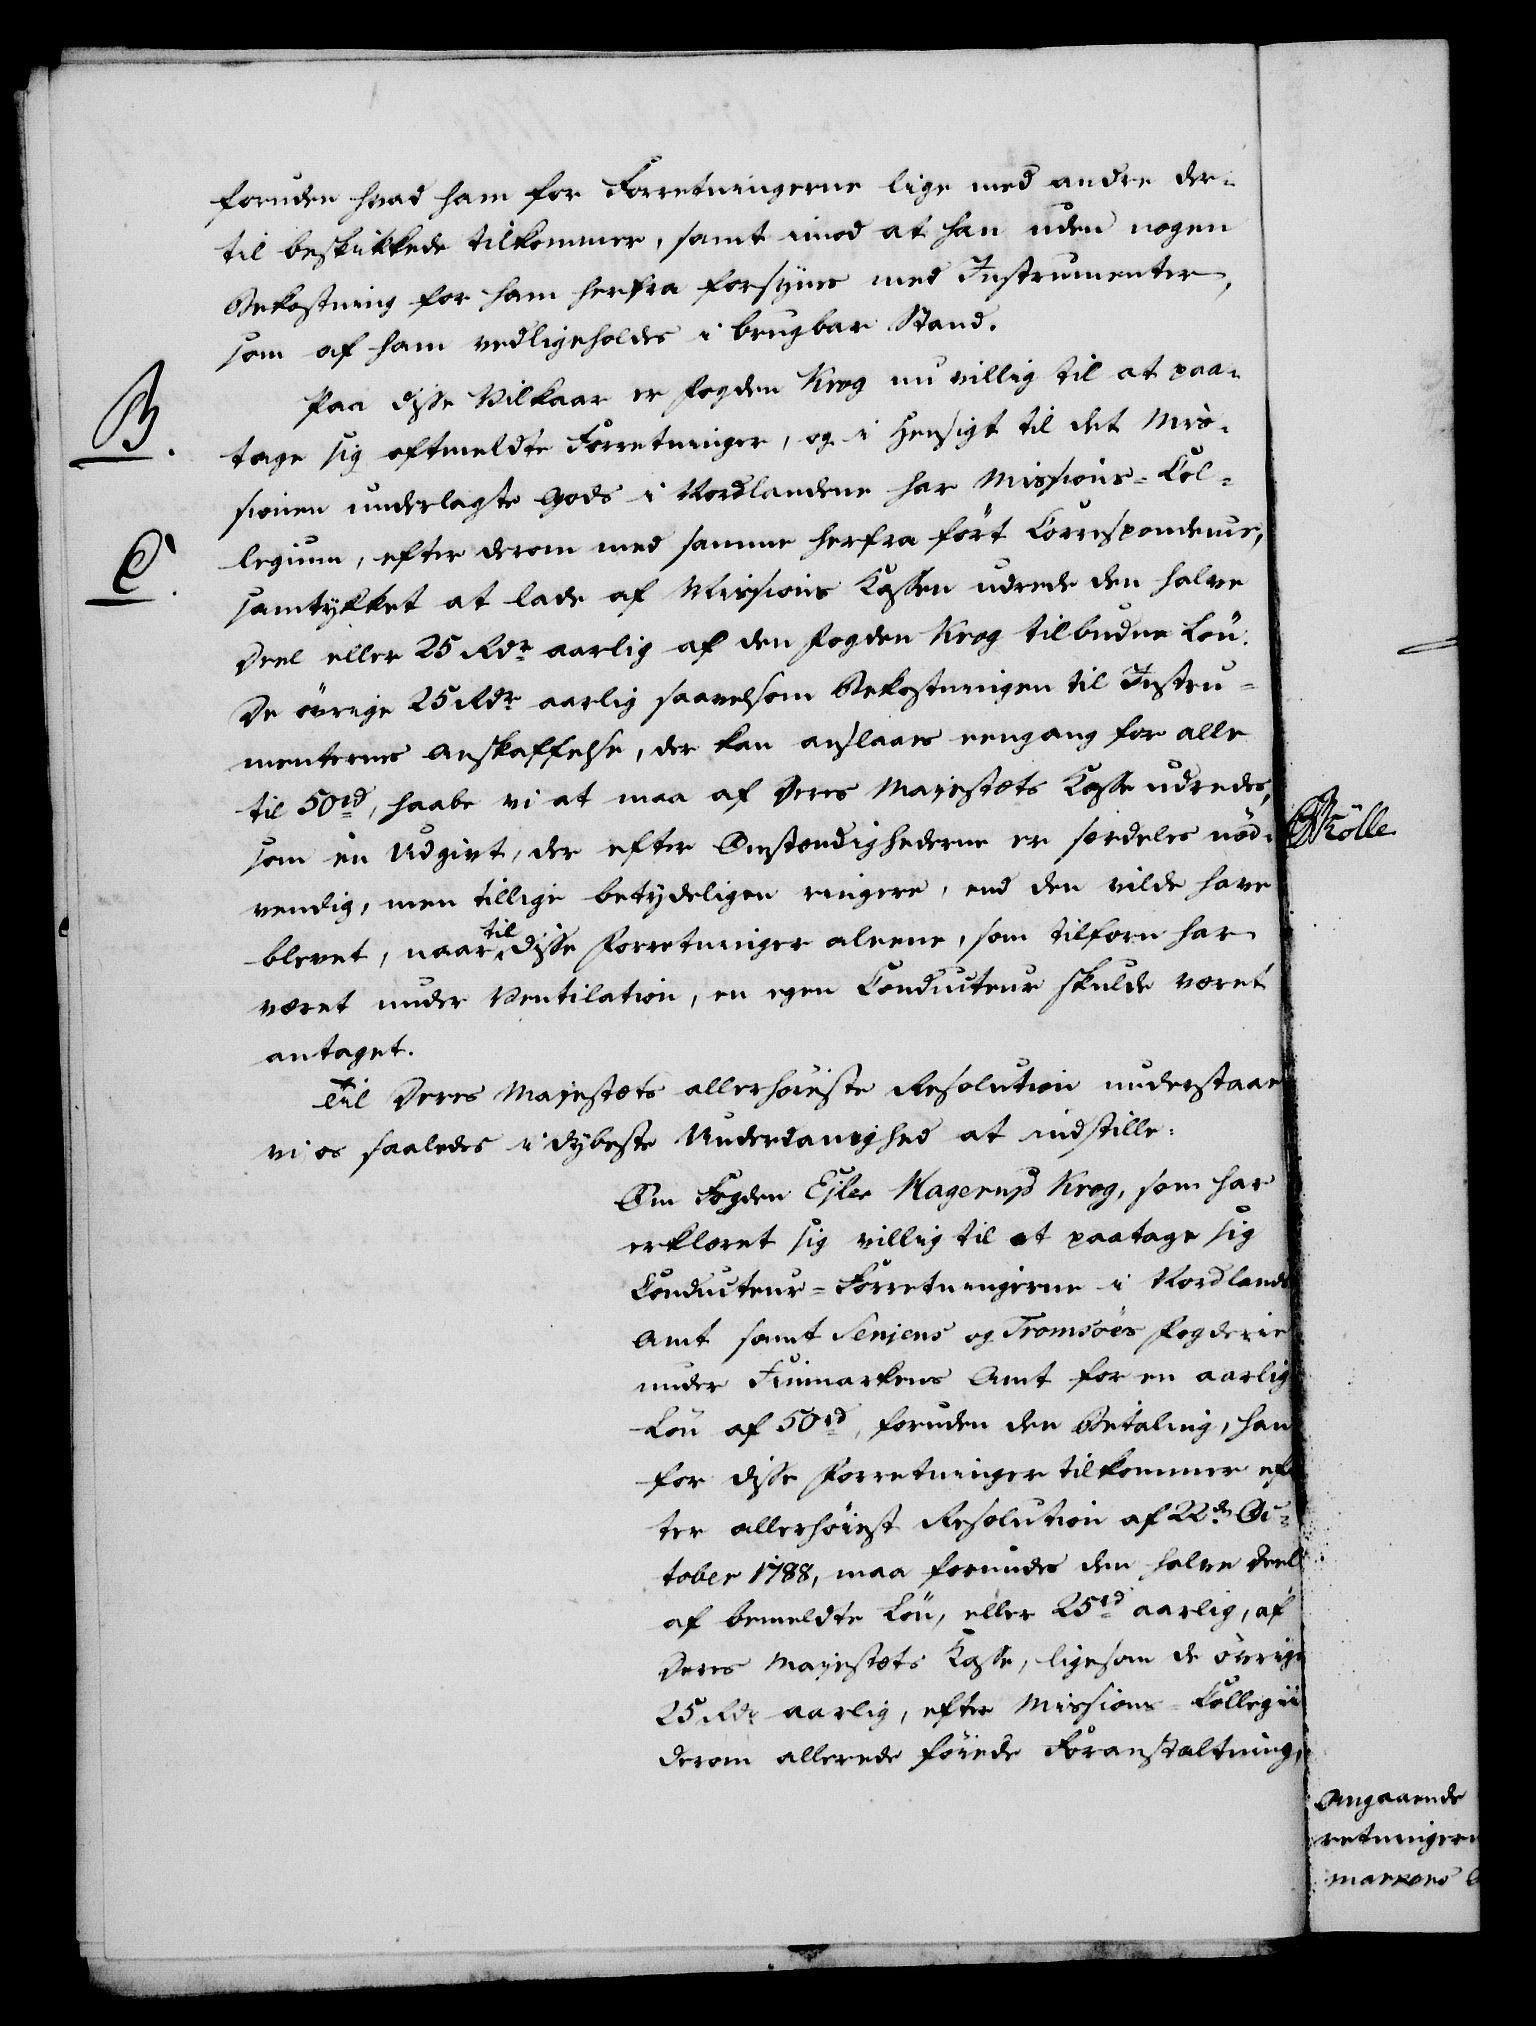 foruden hvad ham for Forretningerne lige med andre der-
til beskikkede tilkommer, samt imod at han uden nogen
Bekostning for ham herfra forsÿnes med Instrumenter,
som af ham vedligeholdes i brugbar Stand.
Paa disse Vilkaar er Fogden Krog nu villig til at paa-
B.
tage sig oftmeldte Forretninger, og i Hensigt til det Mis-
sionen underlagte Gods i Nordlandene har Missions-Col-
C.
legium, efter derom med samme herfra ført Correspondence,
samtykket at lade af Missions Kassen udrede den halve
Deel eller 25 Rdr aarlig af den Fogden Krog tilbudne Løn.
De øvrige 25 Rdr aarlig saavelsom Bekostningen til Instru-
menternes Anskaffelse, der kan anslaaes eengang for alle
til 50 rd, haabe vi at maa af Deres Majestæts Kasse udredes,
som en Udgivt, der efter Omstændighederne er særdeles nød-
vendig, men tillige betydeligen ringere, end den vilde have
blevet, naar til disse Forretninger alene, som tilforn har
været under Ventilation, en egen Conducteur skulde været
antaget.
Til Deres Majestæts allerhøieste Resolution understaae
vi os saaledes i dybeste Underdanighed at indstille:
Om Fogden Ejler Hagerup Krog, som har
erklæret sig villig til at paatage sig
Conducteur-Forretningerne i Nordlands
Amt samt Senjens og Tromsøes Fogderie
under Finmarkens Amt for en aarlig
Løn af 50 rd, foruden den Betaling, han
for disse Forretninger tilkommer ef-
ter allerhøiest Resolution af 22de Oc-
tober 1788, maa forundes den halve Deel
af bemeldte Løn, eller 25 rd aarlig, af
Deres Majestæts Kasse, ligesom de øvrige
25 Rdr aarlig, efter Missions-Collegii
derom allerede føiede Foranstaltning,
Mölle
Angaaende
retningern
markens